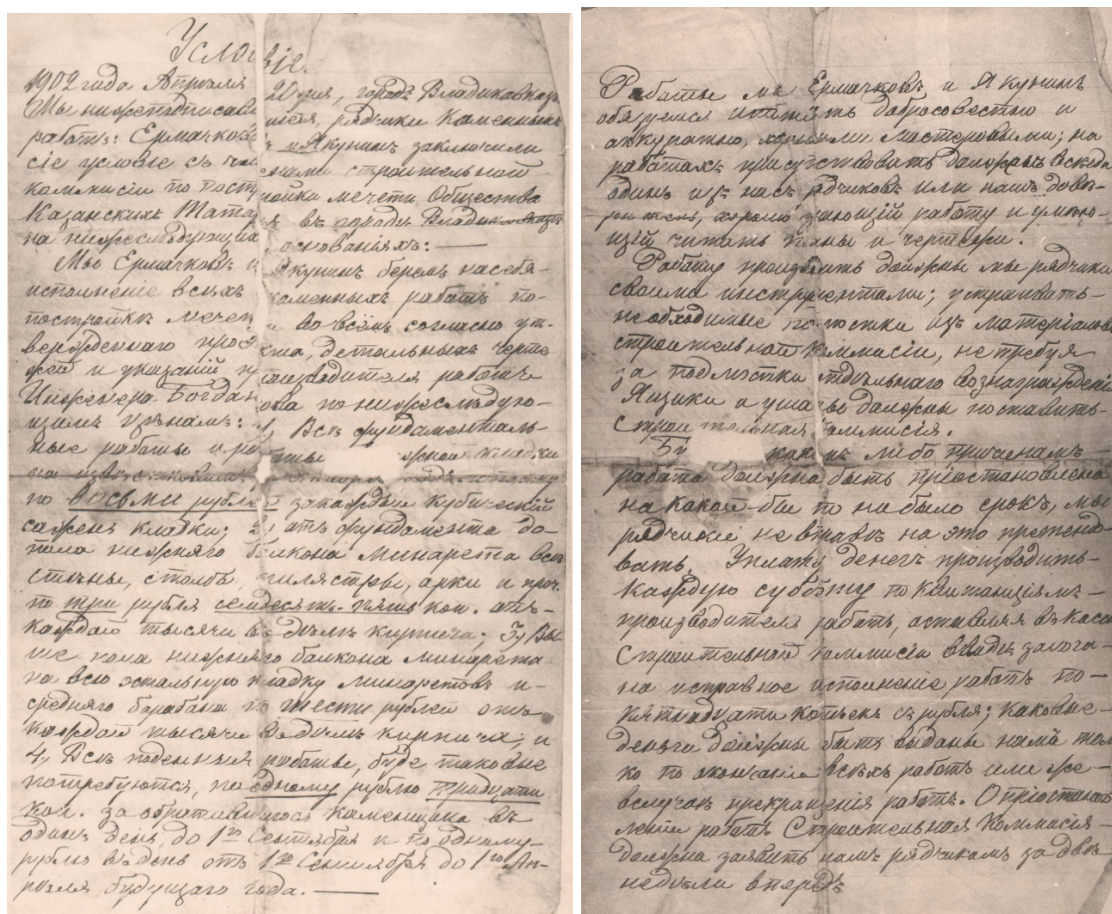 Условіе.
1902 года Апрѣля 20 дня, городъ Владикавказъ
Мы нижеподписавшіеся, рядчики Каменныхъ
работъ: Ермачковъ и Якунинъ заключили
сіе условіе съ членами строительной
коммисіи по постройки мечети Общества
Казанскихъ Татаръ въ городѣ Владикавказѣ
на нижеслѣдующихъ основаніяхъ: —
Мы Ермачковъ и Якунинъ беремъ на себя-
исполненіе всѣхъ каменныхъ работъ по-
постройкѣ мечети во всёмъ согласно ут-
вержденнаго проэкта, детальныхъ черте
жей и указаній производителя работъ
Инженера Богданова по нижеслѣдую-
щимъ цѣнамъ: 1, Всѣ фундаменталь-
ные работы кладки
по восьми рублей за каждый кубическій
сажень кладки; 2, отъ фундамента до-
пола нижняго балкона Минарета всѣ
стѣны, столбы, пилястры, арки и проч.
по три рубля семдесятъ-пять коп. отъ-
каждой тысячи въ дѣлѣ кирпича; 3, Вы
ше пола нижняго балкона минарета
на всю остальную кладку минаретовъ и-
средняго барабана по шести рублей отъ
каждой тысячи въ дѣлѣ кирпича; и
4, Всѣ поденныя работы, буде таковые
потребуются, по одному рублю тридцати
коп. за каменщика въ
одинъ день, до 1го Сентября и по одному-
рублю въ день отъ 1го Сентября до 1го Ап-
рѣля будущаго года. —
Работы мы Ермачковъ и Якунинъ
обязуемся исполнять добросовестно и
аккуратно, хорошими мастеровыми; на
работахъ присутствовать долженъ всегда
одинъ изъ насъ рядчиковъ или нашъ довѣ-
ритель, хорошо знающій работу и умѣю-
щій читать планы и чертежи.
Работу производить должны мы рядчики
своими инструментами; устраивать-
необходимые подмостки изъ матеріаловъ
строительной Коммисіи, не требуя
за подмостки отдѣльнаго вознагражденія
Ящики и ушаты должны поставить-
Строительная Коммисія.
какимъ либо причинамъ
работа должна быть пріостановлена
на какой-бы то ни было срокъ, мы
рядчики не вправѣ на это претендо-
вать. Уплату денегъ производить-
каждую субботу по квитанціямъ-
производителя работъ, оставляя въ кассѣ
Строительной Коммисіи ввидѣ залога-
на исправное исполненіе работъ по-
пятнадцати копѣекъ съ рубля; каковые-
деньги должны быть выданы намъ толь
ко по окончаніи всѣхъ работъ или же-
вслучаѣ прекращенія работъ. О пріостанов
леніи работъ Строительная Коммисія-
должна заявить намъ рядчикамъ за двѣ-
недѣли впередъ